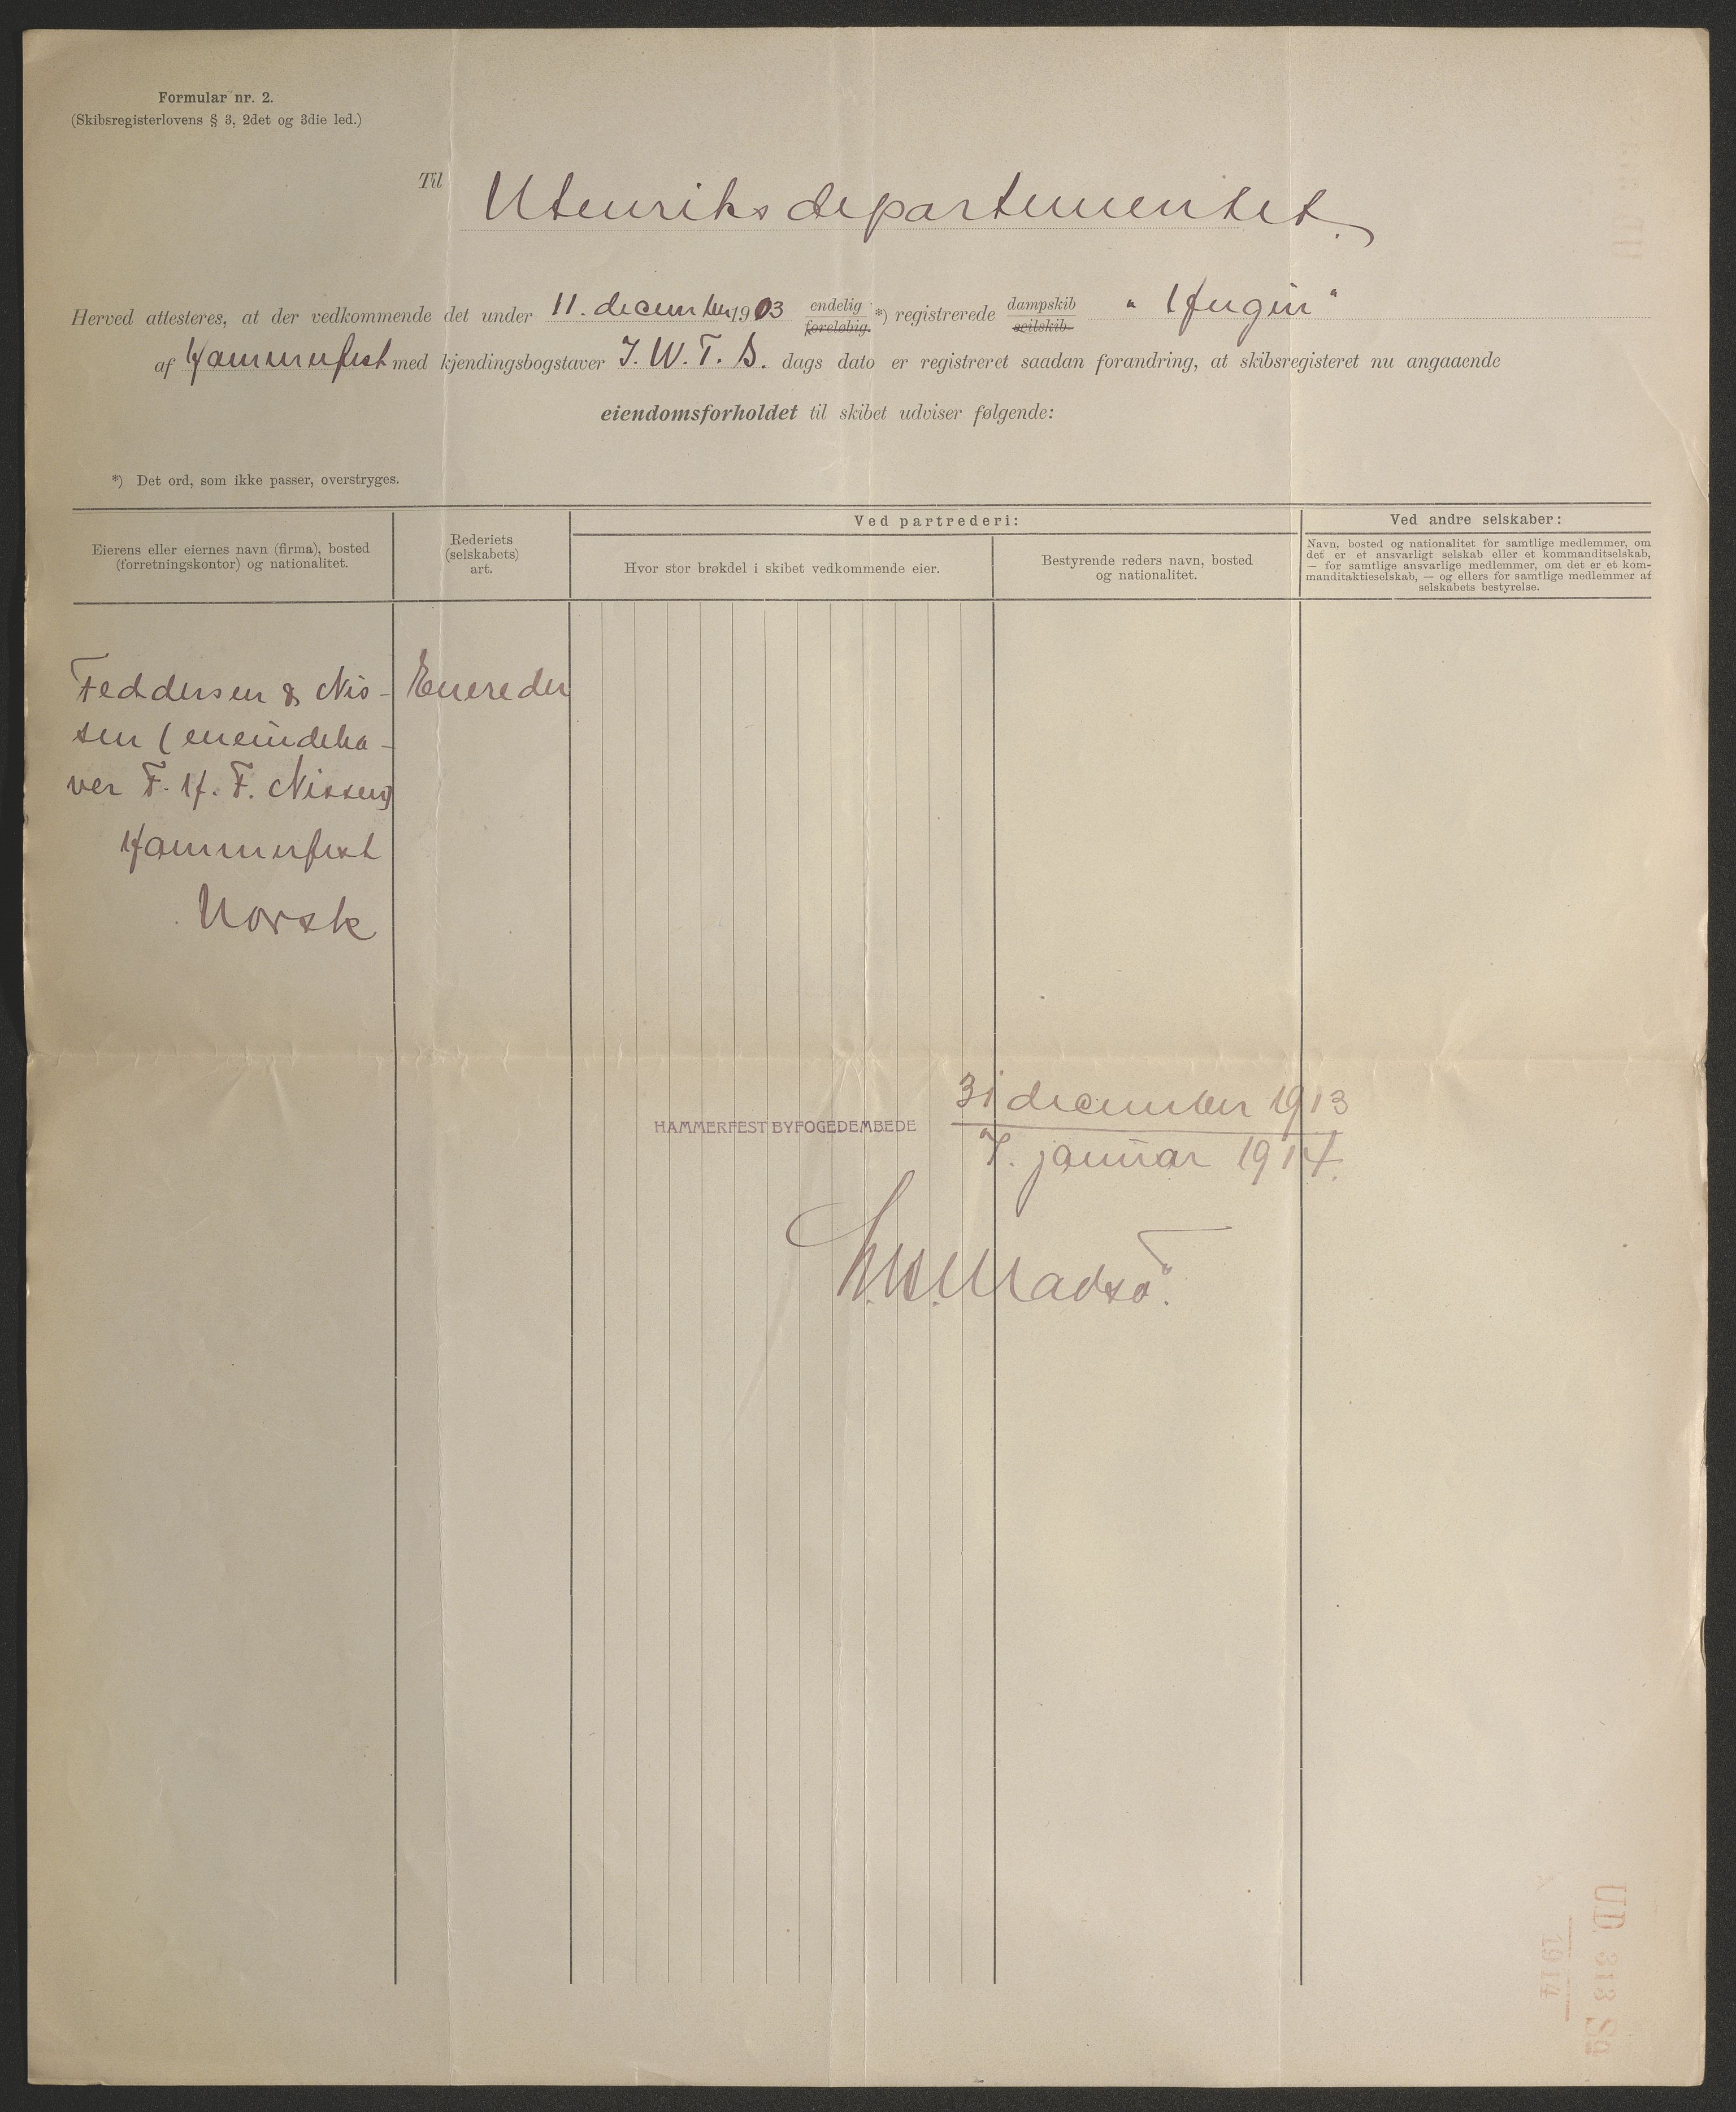 Formular nr. 2.
(Skibsregisterlovens § 3, 2det og 3die led.)
Til Utenriksdepartementet.
Herved attesteres, at der vedkommende det under 11. december 1903 endelig foreløbig. *) registrerede dampskib seilskib "Hugin"
af Hammerfest med kjendingsbogstaver J. W. T. S. dags dato er registreret saadan forandring, at skibsregisteret nu angaaende
eiendomsforholdet til skibet udviser følgende:
*) Det ord, som ikke passer, overstryges.
Eierens eller eiernes navn (firma), bosted
(forretningskontor) og nationalitet.
Rederiets
(selskabets)
art.
Ved partrederi:
Hvor stor brøkdel i skibet vedkommende eier.
Bestyrende reders navn, bosted
og nationalitet.
Ved andre selskaber:
Navn, bosted og nationalitet for samtlige medlemmer, om
det er et ansvarligt selskab eller et kommanditselskab,
— for samtlige ansvarlige medlemmer, om det er et kom-
manditaktieselskab, — og ellers for samtlige medlemmer af
selskabets bestyrelse.
Feddersen & Nis-
sen (eneindeha-
ver F. H. F. Nissen)
Hammerfest
Norsk
Enereder
HAMMERFEST BYFOGEDEMBEDE
31 december 1913
7. januar 1914.
Madsø.
U.D. 313
1914